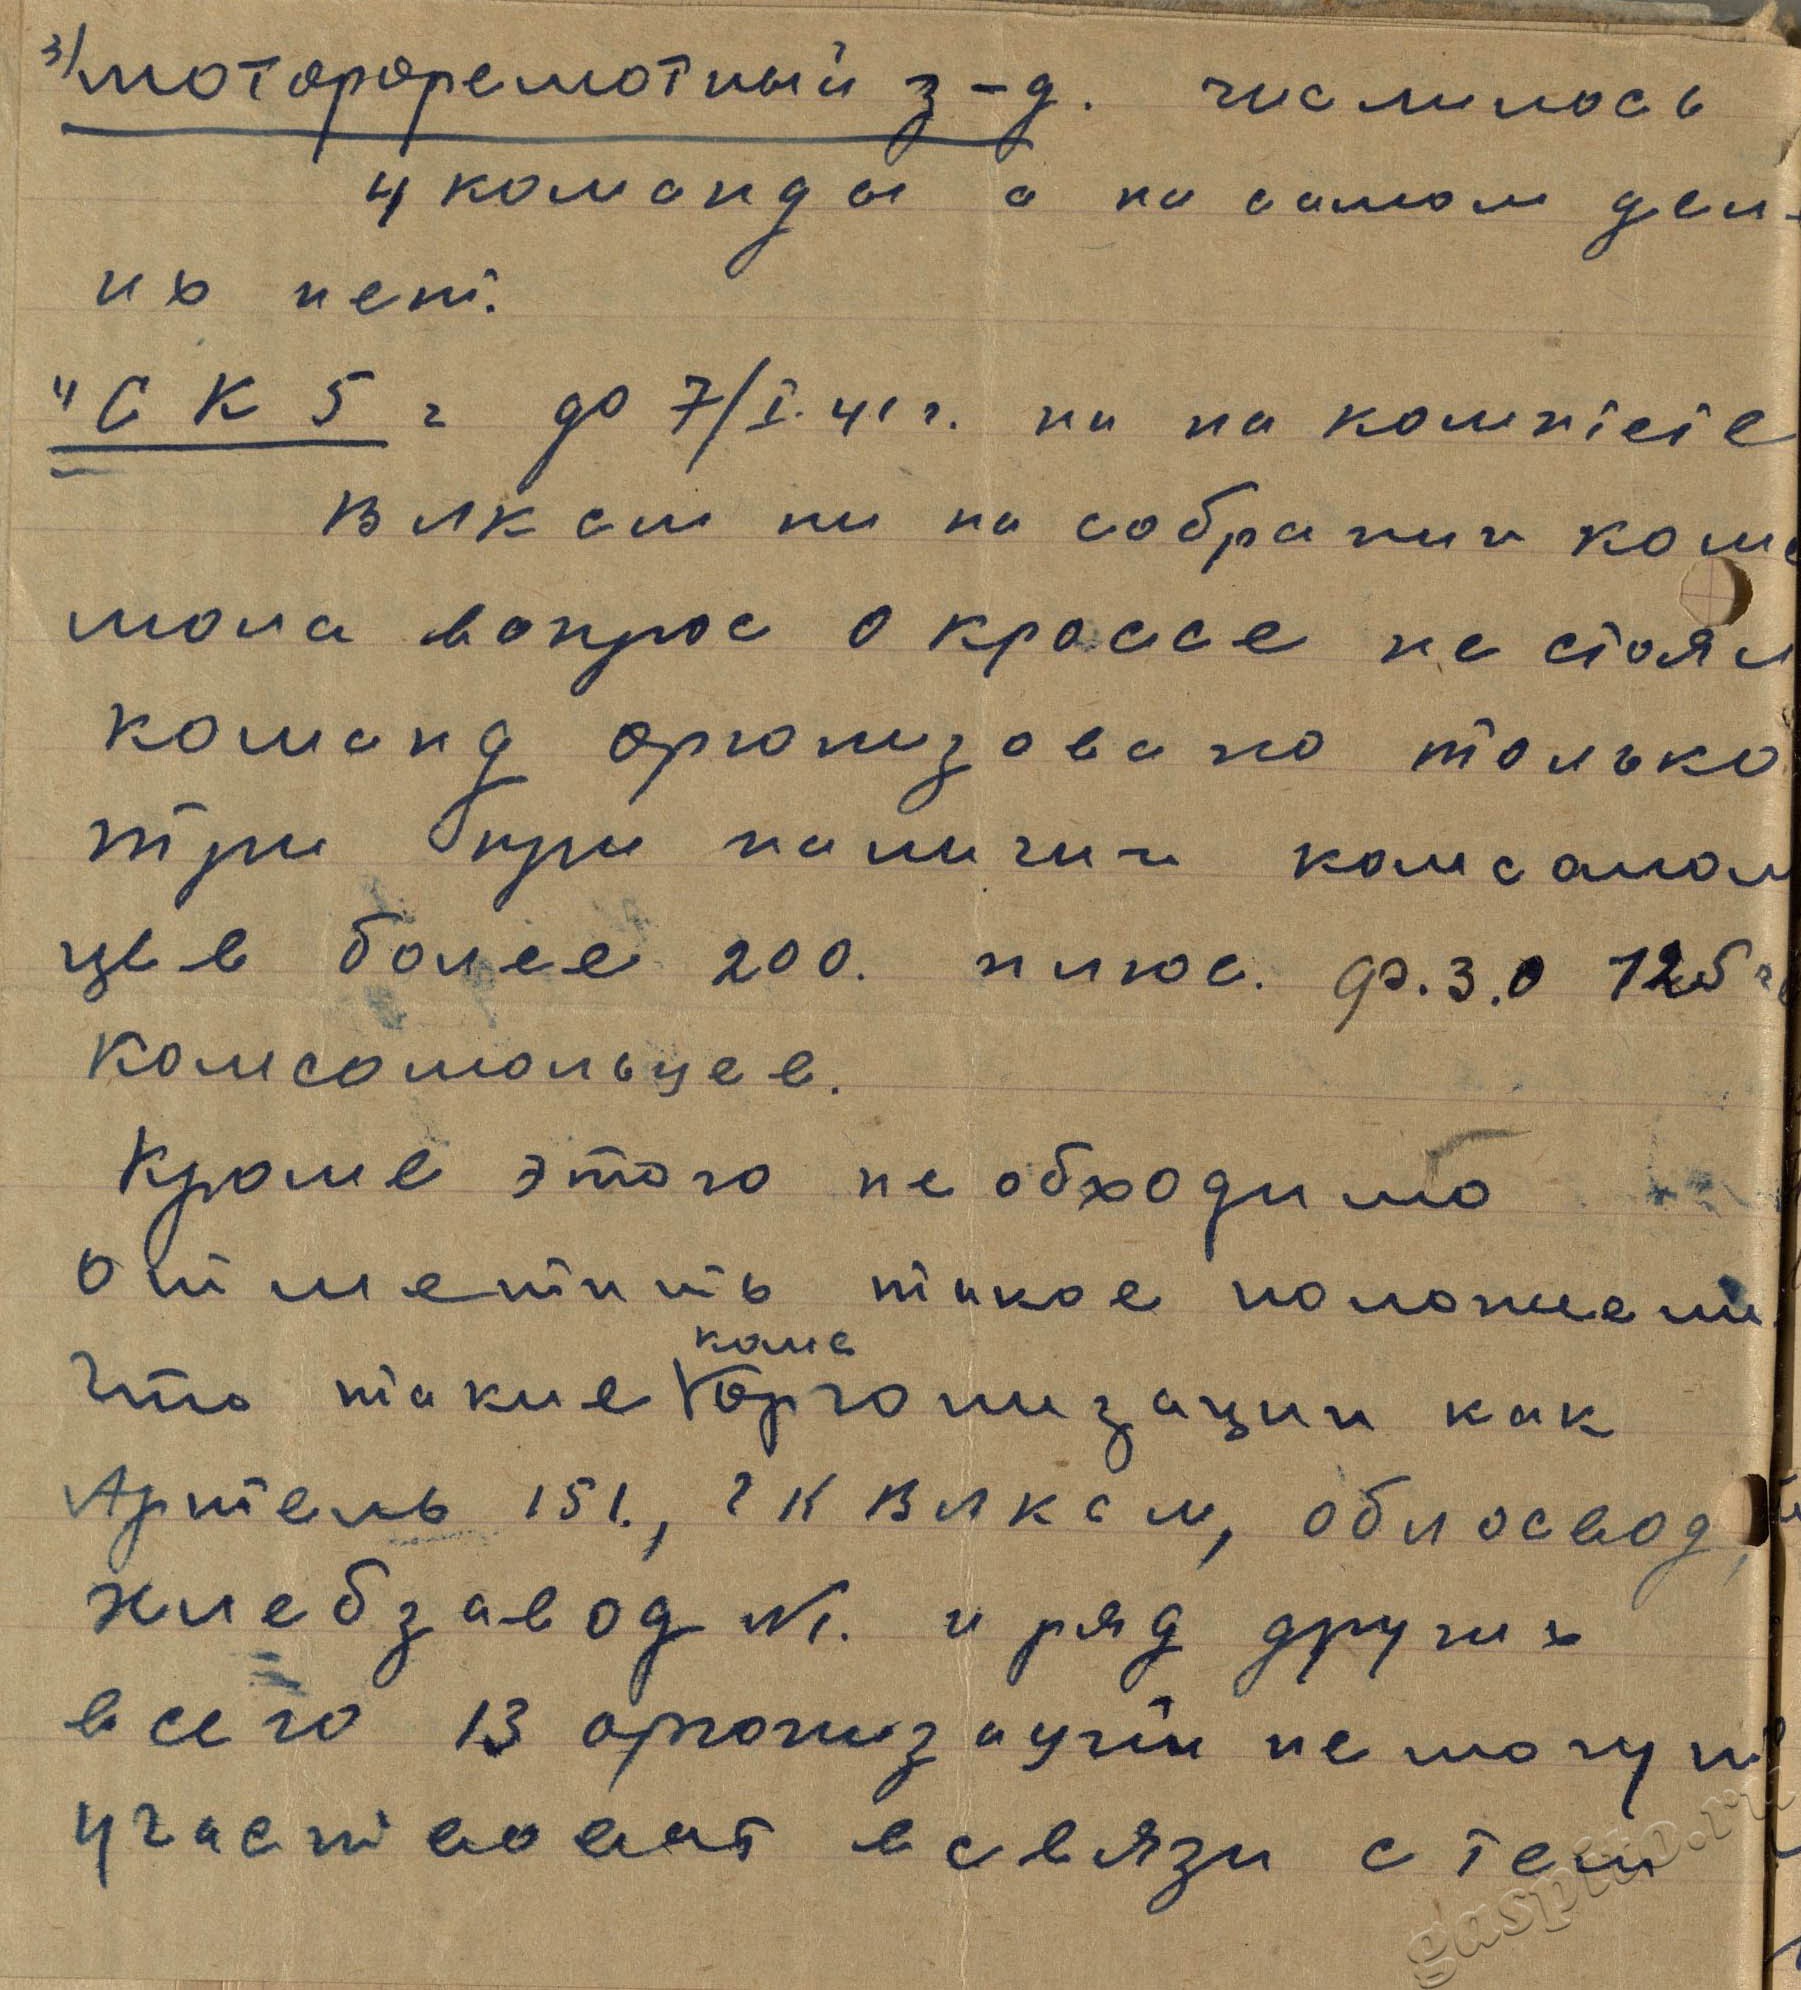 3/ мотороремотный з-д. числилось
4 команды а на самом дел-
их нет.
4 С К Б г до 7/I.41 г. ни на комитете
Влксм ни на собрании комс
мола вопрос о кроссе не стоял
команд организовано только
три при наличии комсомол
цев более 200. плюс. ф.з.о 125
комсомольцев.
Кроме этого необходимо
отметить такое положени
что такие комс организации как
Артель 151., ГК Влксм, облосвод,
хлебзавод №1. и ряд других
всего 13 организаций не могут
участвоват в связи с тем
gaspito.ru